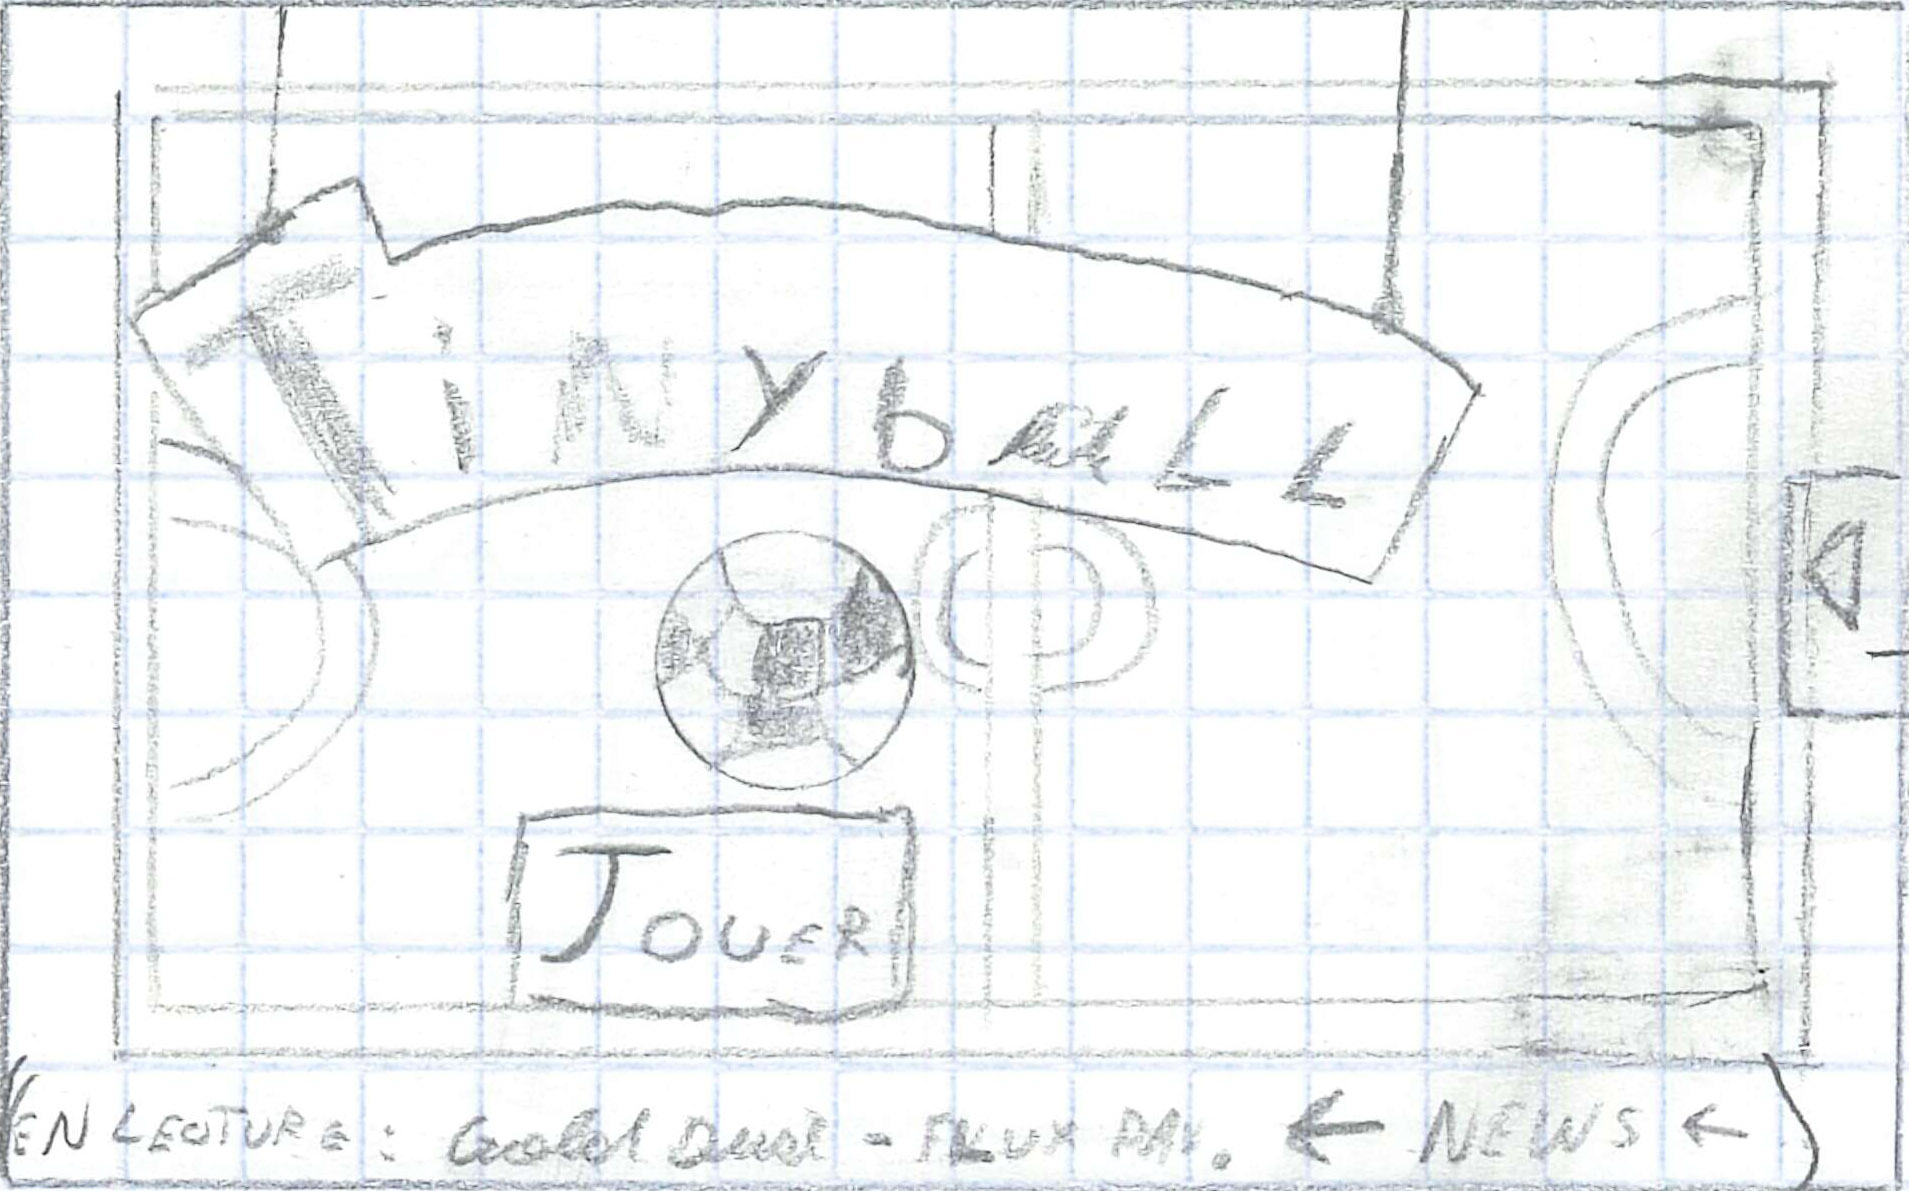 Tinyball
Jouer
EN LECTURE: Gold Dust - FLUX PAV. ← NEWS ←